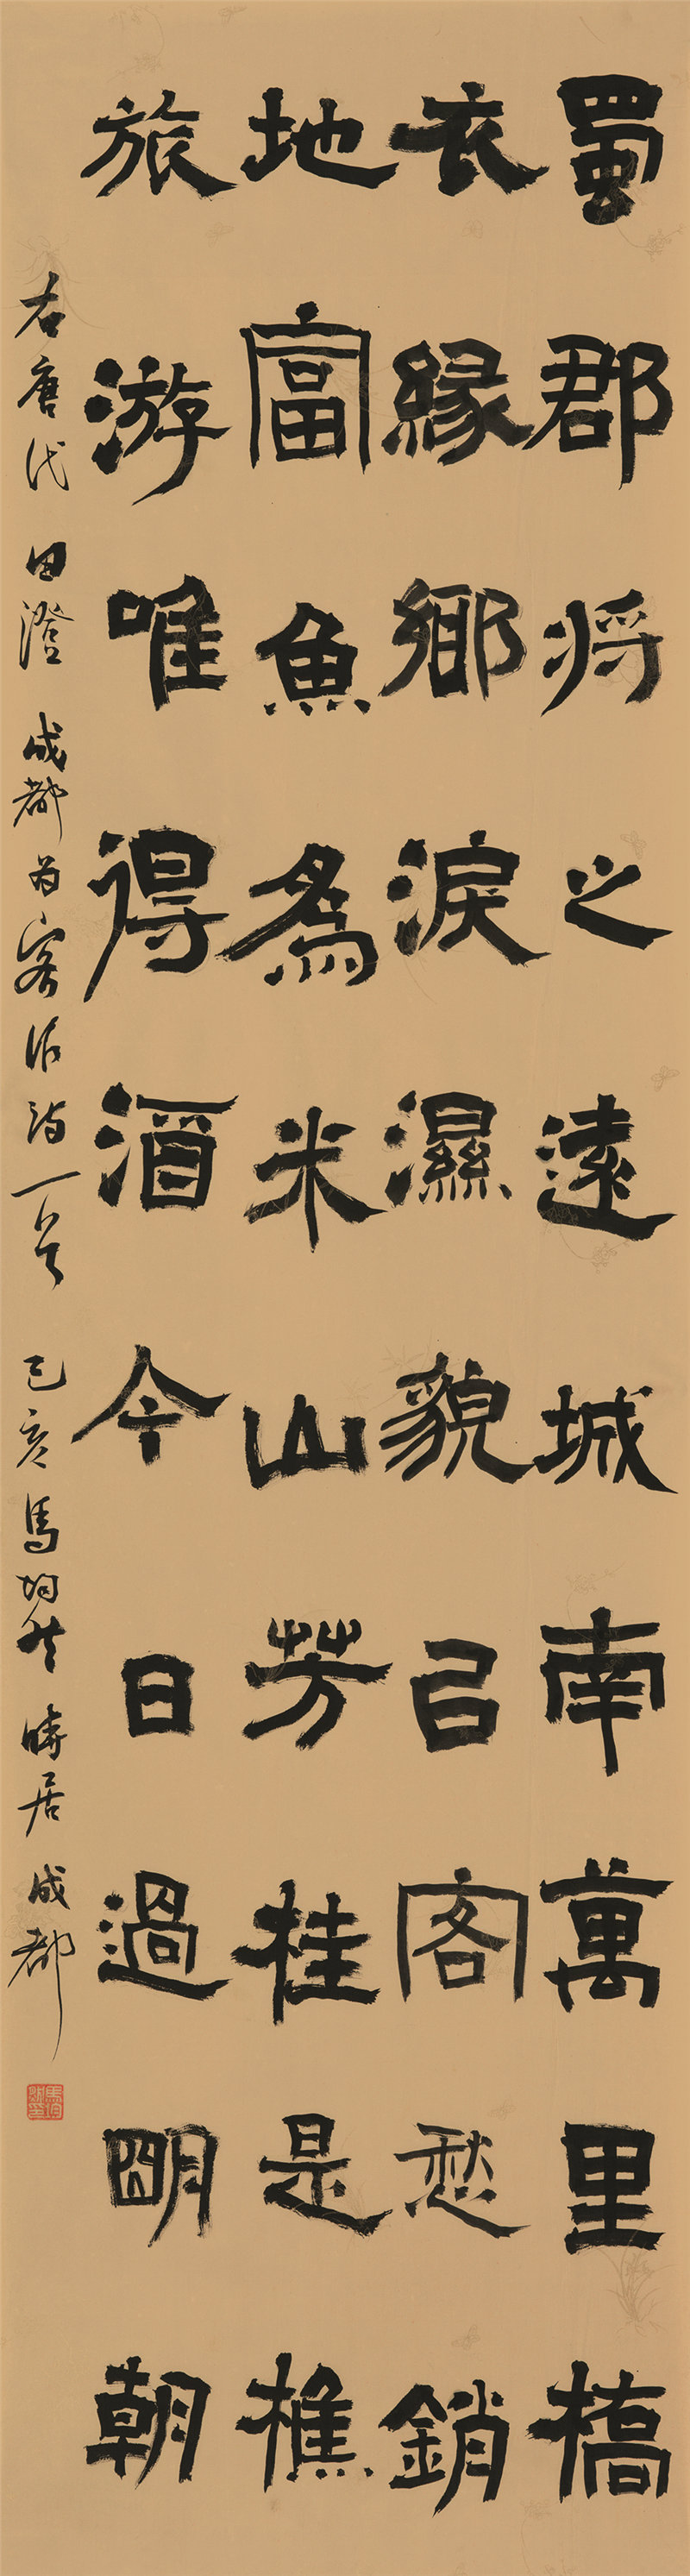 蜀郡将之遠城南萬里橋
衣緣鄉淚濕貌㠯客愁銷
地富魚為米山芳桂是樵
旅游唯得酒今日過朙朝
右唐代 田澄 成都为客作诗一首 己亥馬 時居成都